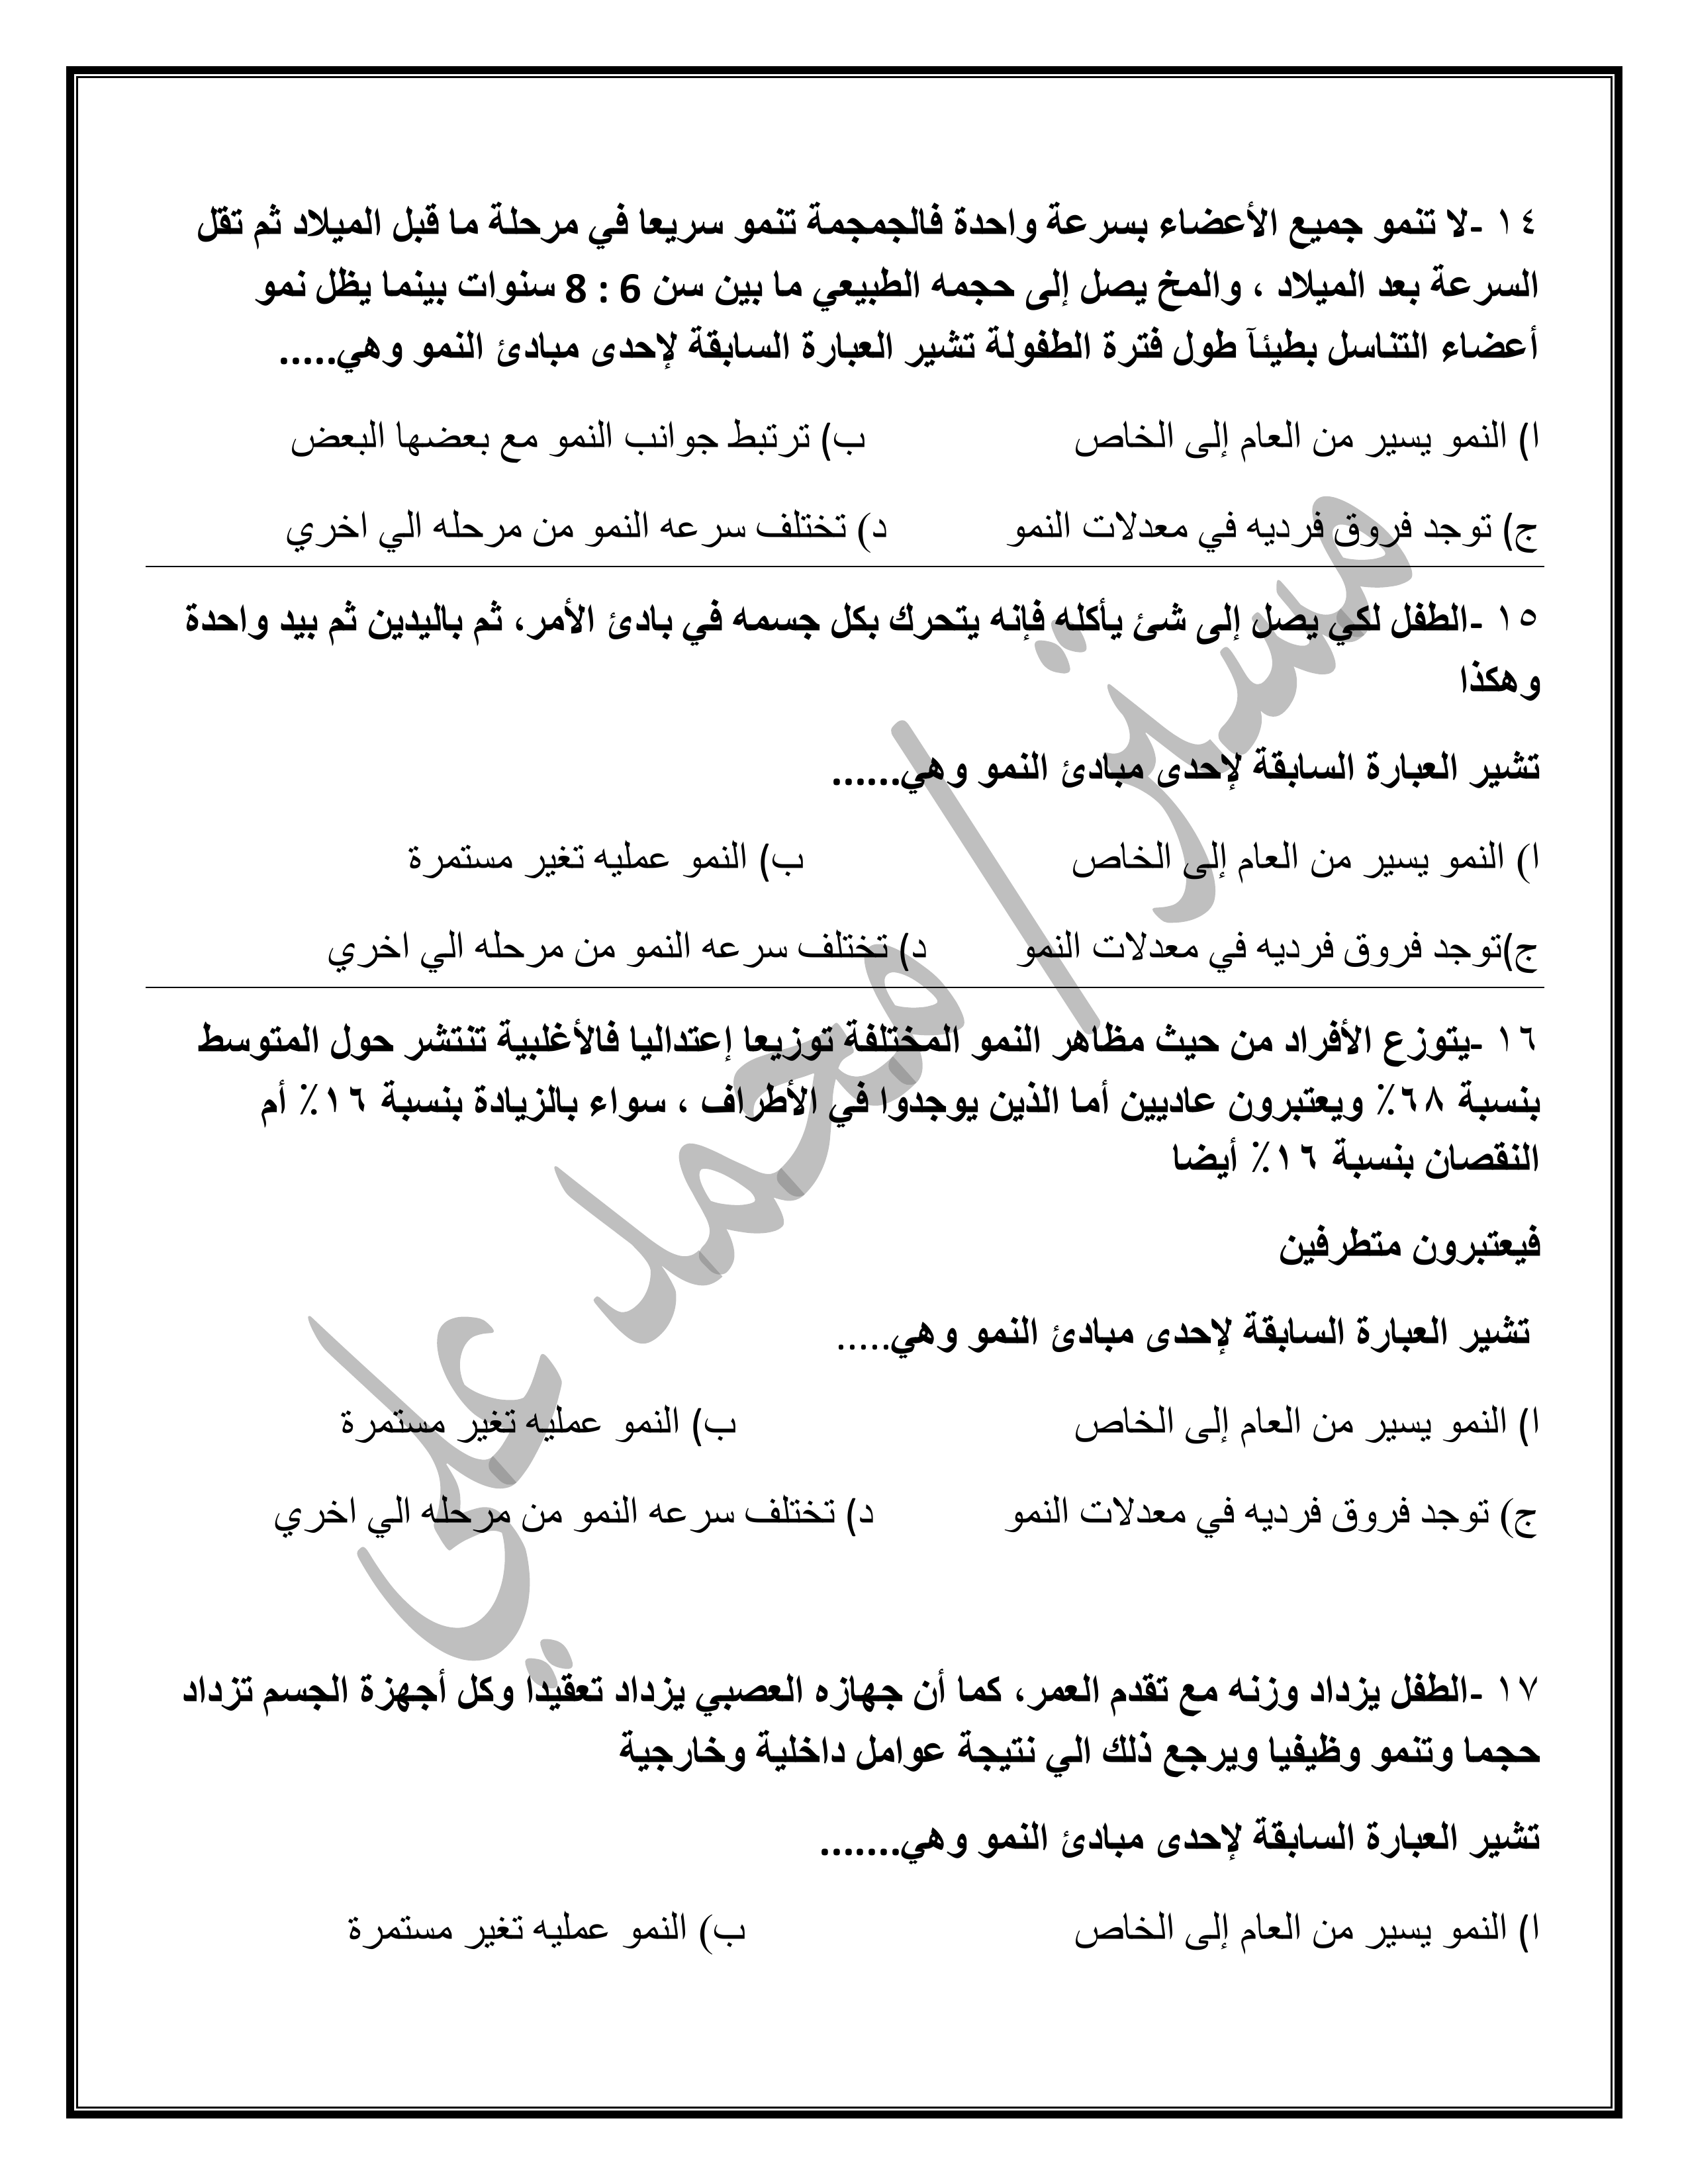 ١٤ -لا تنمو جميع الأعضاء بسرعة واحدة فالجمجمة تنمو سريعا في مرحلة ما قبل الميلاد ثم تقل
السرعة بعد الميلاد ، والمخ يصل إلى حجمه الطبيعي ما بين سن 6 : 8 سنوات بينما يظل نمو
أعضاء التناسل بطيئآ طول فترة الطفولة تشير العبارة السابقة لإحدى مبادئ النمو وهي.....
ا) النمو يسير من العام إلى الخاص ب) ترتبط جوانب النمو مع بعضها البعض
ج) توجد فروق فرديه في معدلات النمو د) تختلف سرعه النمو من مرحله الي اخري
١٥ -الطفل لكي يصل إلى شئ يأكله فإنه يتحرك بكل جسمه في بادئ الأمر، ثم باليدين ثم بيد واحدة
وهكذا
تشير العبارة السابقة لإحدى مبادئ النمو وهي......
ا) النمو يسير من العام إلى الخاص ب) النمو عمليه تغير مستمرة
ج)توجد فروق فرديه في معدلات النمو د) تختلف سرعه النمو من مرحله الي اخري
١٦ -يتوزع الأفراد من حيث مظاهر النمو المختلفة توزيعا إعتداليا فالأغلبية تنتشر حول المتوسط
بنسبة ٦٨٪ ويعتبرون عاديين أما الذين يوجدوا في الأطراف ، سواء بالزيادة بنسبة ١٦٪ أم
النقصان بنسبة ١٦٪ أيضا
فيعتبرون متطرفين
تشير العبارة السابقة لإحدى مبادئ النمو وهي.....
ا) النمو يسير من العام إلى الخاص ب) النمو عمليه تغير مستمرة
ج) توجد فروق فرديه في معدلات النمو د) تختلف سرعه النمو من مرحله الي اخري
١٧ -الطفل يزداد وزنه مع تقدم العمر، كما أن جهازه العصبي يزداد تعقيدا وكل أجهزة الجسم تزداد
حجما وتنمو وظيفيا ويرجع ذلك الي نتيجة عوامل داخلية وخارجية
تشير العبارة السابقة لإحدى مبادئ النمو وهي.......
ا) النمو يسير من العام إلى الخاص ب) النمو عمليه تغير مستمرة
مستر/ محمد علي